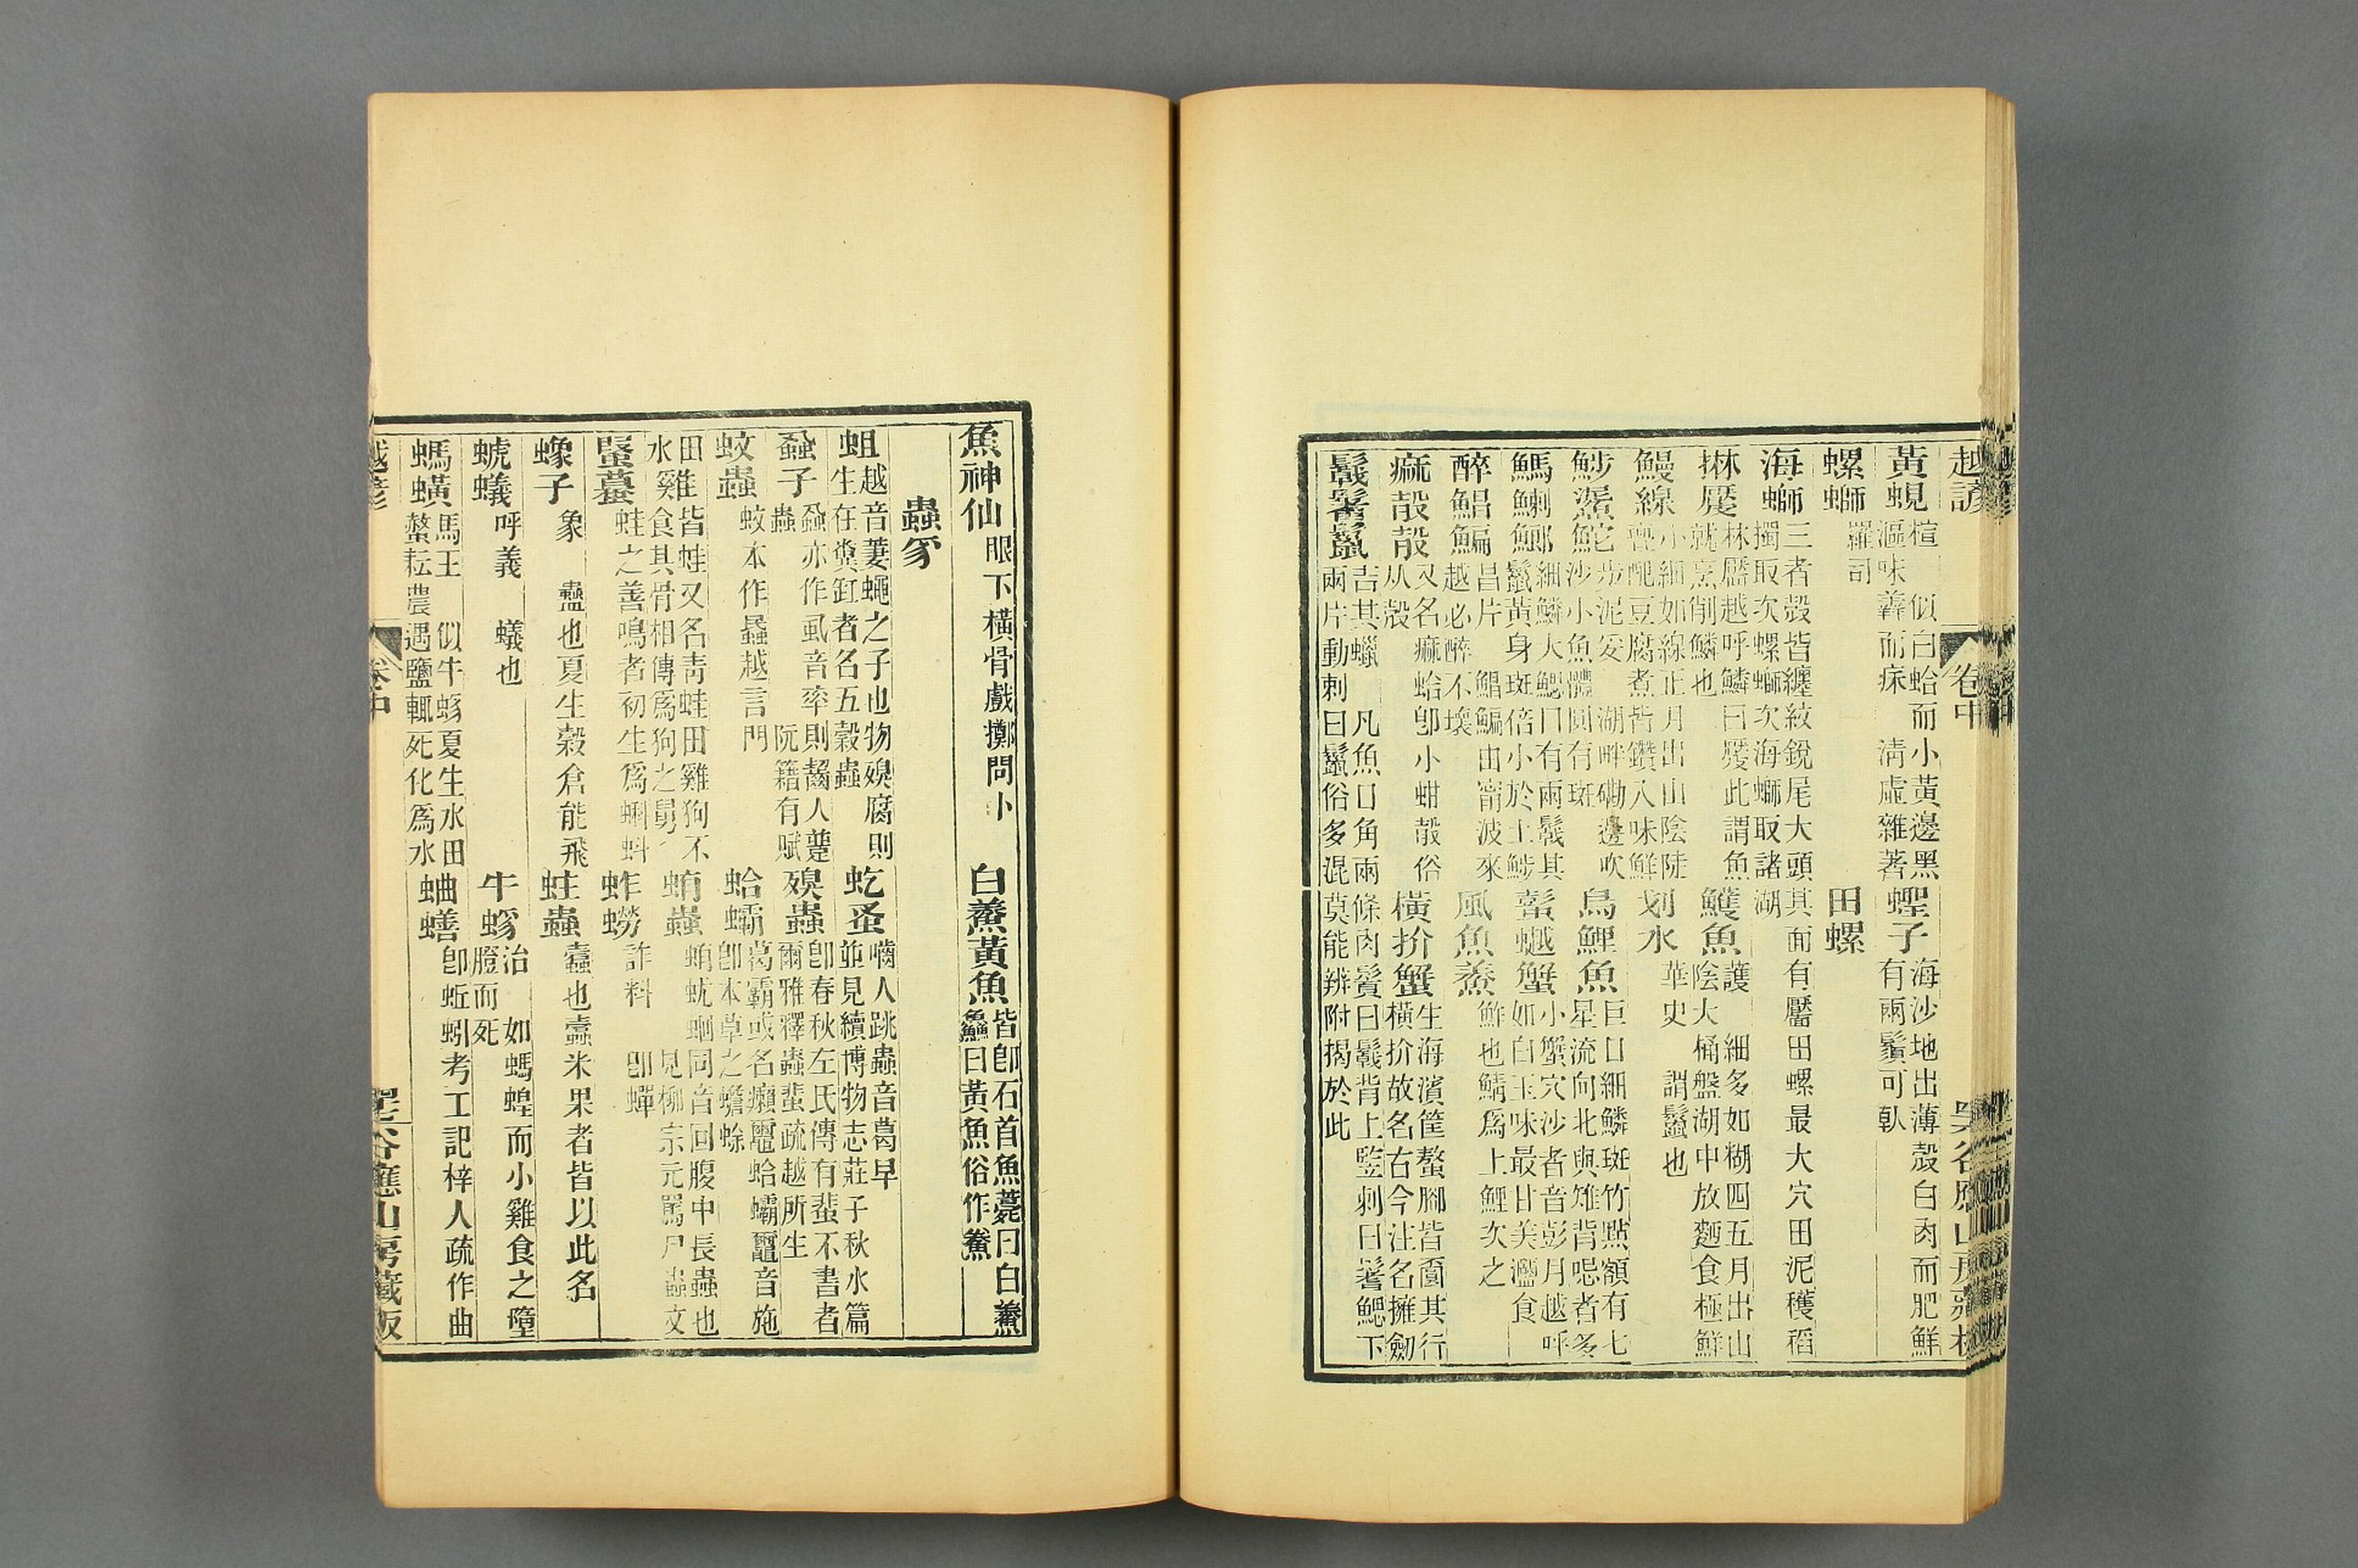 越諺 卷中
黃蜆 楦 似白蛤而小黃邊黑
漚味 羴而痳 淸虛雜著
蟶子 海沙地出薄殼白肉而肥鮮
有兩鬚可㕡
螺螄 羅司
田螺
海螄 三者殼皆纏紋銳尾大頭其面有靨田螺最大穴田泥穫稻
擉取次螺螄次海螄取諸湖
林靨越呼鱗曰 此謂魚
就烹削鱗也
鱯魚 護 細多如糊四五月出山
陰大桶盤湖中放麵食極鮮
鰻線 小細如線正月出山陰陡
亹配豆腐煮皆鑽入味鮮
划水 華史 謂鬣也
步泥𡛸 湖畔磡邊吹
沙小魚體圓有斑
烏鯉魚 巨口細鱗斑竹點額有七
星流向北與雉背唿者多
細鱗大鰓口有兩鬣其
鬣黃身斑倍小於土
蟚蚎蟹 小蟹穴沙者音彭月越呼
如白玉味最甘美灎食
醉鯧鯿 昌片 鯧鯿由甯波來
越必醉不壞
風魚鯗 鮓也鯖爲上鯉次之
痲㱿㱿 又名痲蛤卽小蚶㱿俗
从殼
橫扴蟹 生海濱筐螯腳皆匾其行
橫扴故名右今注名擁劒
吉其蠟 凡魚口角兩條肉鬢曰鬛背上豎刺曰鬐鰓下
兩片動刺曰鬣俗多混莫能辨附揭於此
魚神仙 眼下橫骨戲擲問卜
白鯗黃魚 皆卽石首魚薧曰白鮝
鱻曰黃魚俗作鮝
蟲豸
蛆 越音蔞蠅之子也物㱡腐則
生在糞缸者名五穀蟲
虼蚤 嚙人跳蟲音葛早
並見續博物志莊子秋水篇
蝨子 蝨亦作虱音率則齧人躉
蟲 阮籍有賦
㱡蟲 卽春秋左氏傳有蜚不書者
爾雅釋蟲蜚疏越所生
蚊蟲 蚊本作蟁越言門
蛤蚆 葛霸或名癩鼀蛤蚆鼉音施
卽本草之蟾蜍
田雞 皆蛙又名靑蛙田雞狗不
水雞 食其骨相傳爲狗之舅
蛕蟲 蛕蚘蛔同音回腹中長蟲也
見柳宗元罵尸蟲文
蛙之善鳴者初生爲蝌蚪
蚱蟧 詐料 卽蟬
蟓子 象 蠱也夏生榖倉能飛
蛀蟲 蠹也蠹米果者皆以此名
蜣蟻 呼義 蟻也
牛蝂 治 如螞蝗而小雞食之墮
膯而死
螞蟥 馬王 似牛蝂夏生水田
螯耘農遇鹽輒死化爲水
蛐蟮 卽蚯蚓考工記梓人疏作曲
越諺 卷中
谷應山房藏板